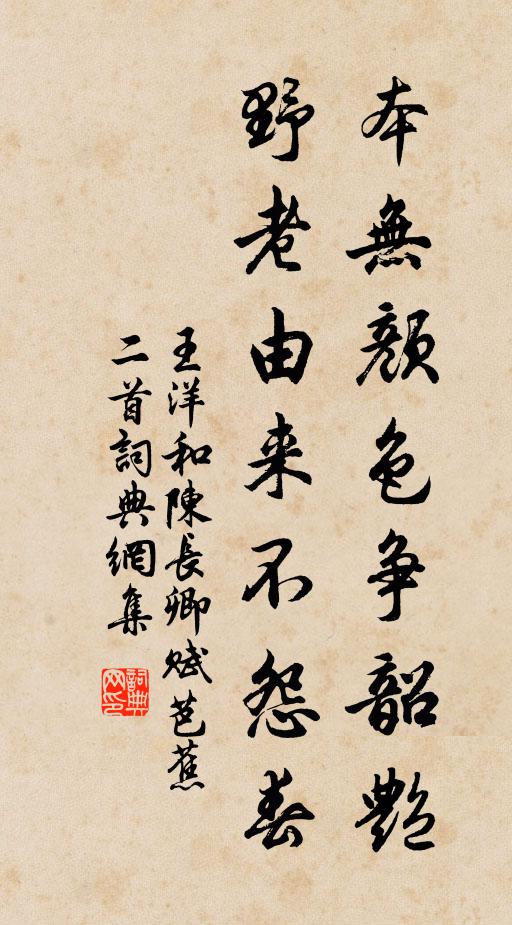 本無顏色爭韶艷
野老由来不怨春
王洋和陳長卿賦芭蕉
二首詞典網集
詞典網印